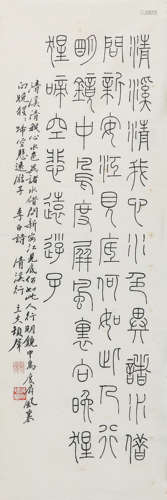 清溪清我心水色異諸水借
問新安江見底何如此人行
明鏡中鳥度屏風裏向晚猩
猩啼空悲遠遊子
清溪清我心水色異諸水借問新安江見底何如此人行明鏡中鳥度屏風裏
向晚猩猩啼空悲遠遊子 李白詩 清溪行